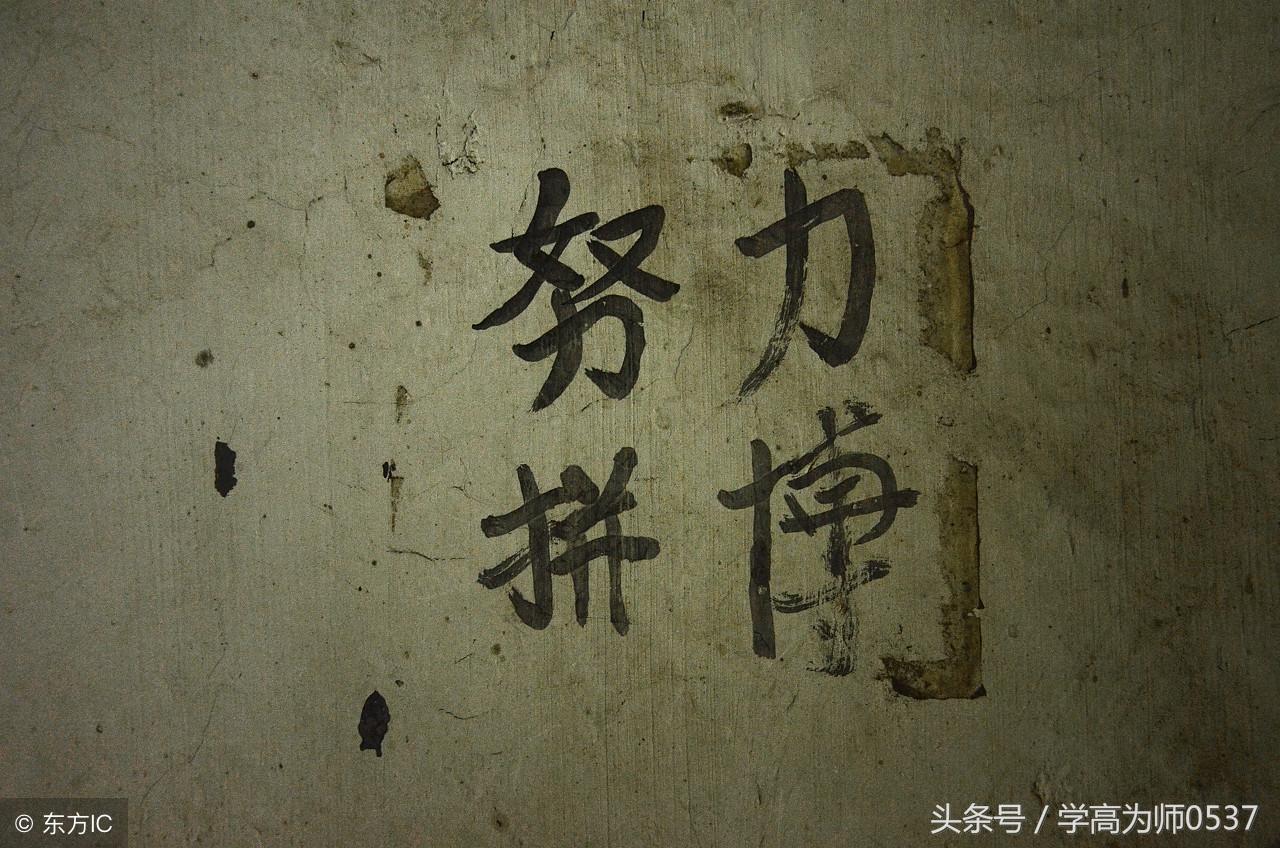 努力
拼博
© 东方IC
头条号 / 学高为师0537